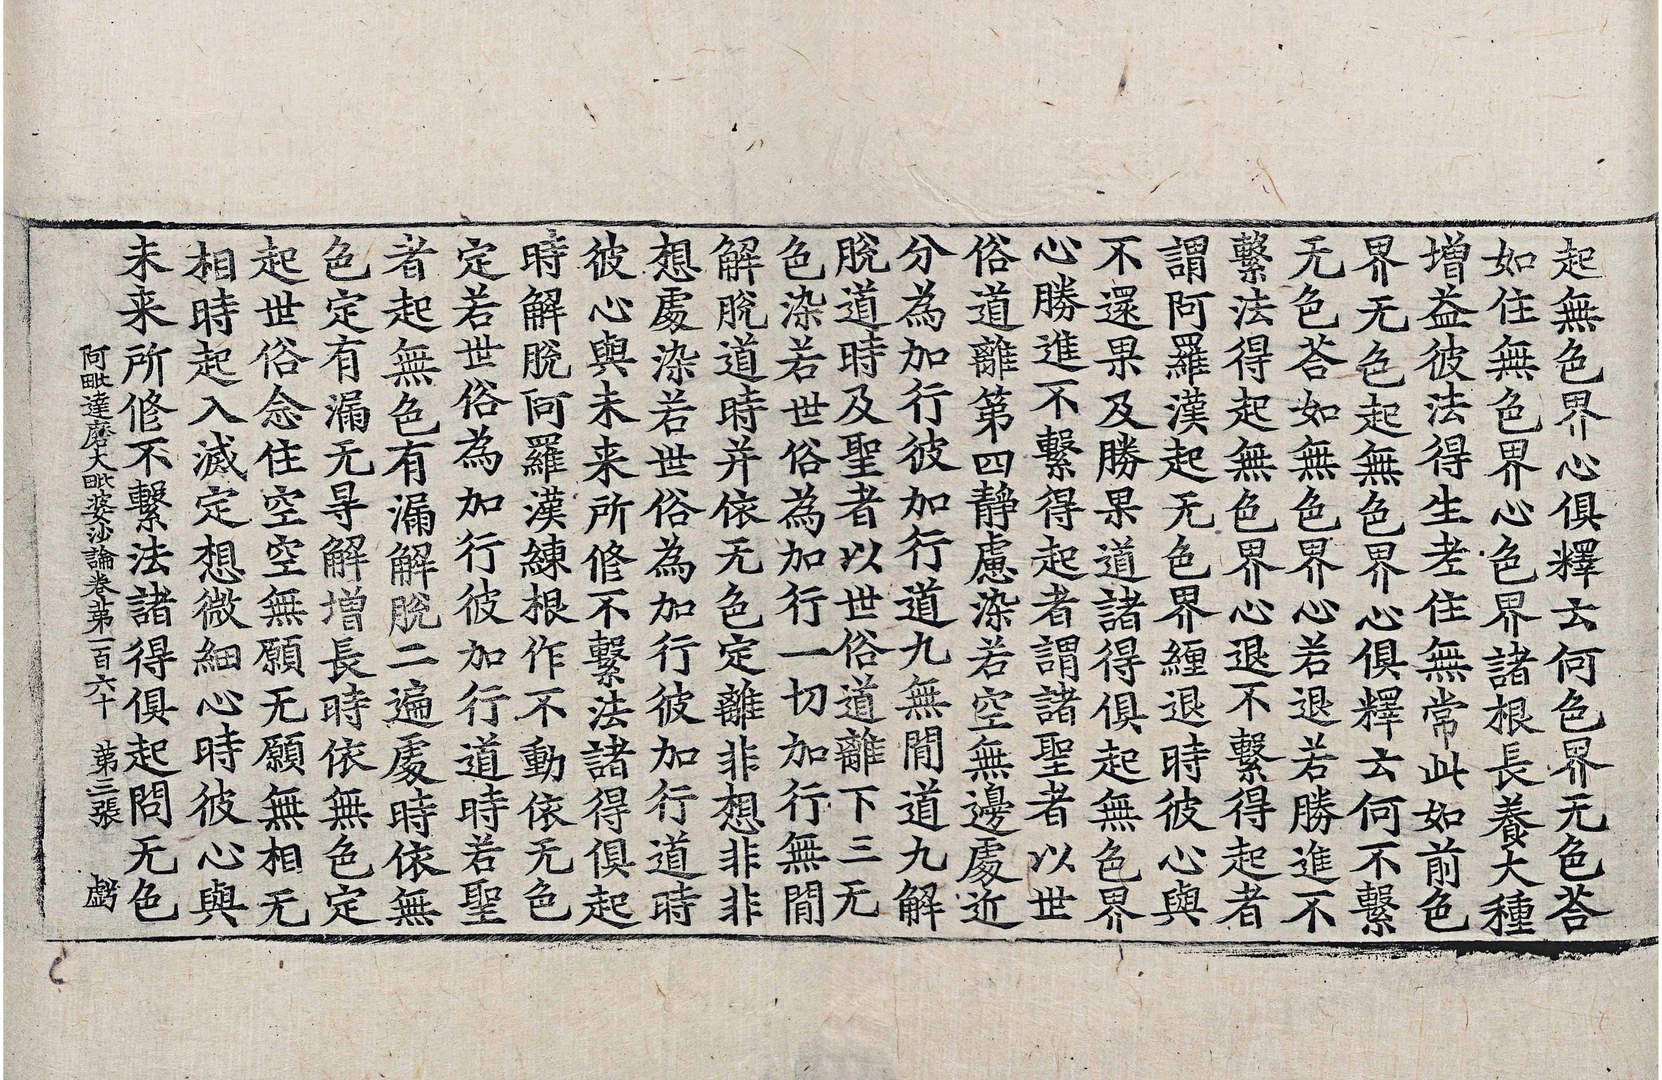 起無色界心俱釋云何色界无色荅
如住無色界心色界諸根長養大種
增益彼法得生老住無常此如前色
界无色起無色界心俱釋云何不繫
无色荅如無色界心若退若勝進不
繫法得起無色界心退不繫得起者
謂阿羅漢起无色界纏退時彼心與
不還果及勝果道諸得俱起無色界
心勝進不繫得起者謂諸聖者以世
俗道離第四靜慮染若空無邊處近
分為加行彼加行道九無閒道九解
脫道時及聖者以世俗道離下三无
色染若世俗為加行一切加行無閒
解脫道時并依无色定離非想非非
想處染若世俗為加行彼加行道時
彼心與未来所修不繫法諸得俱起
時解脫阿羅漢練根作不動依无色
定若世俗為加行彼加行道時若聖
者起無色有漏解脫二遍處時依無
色定有漏无㝵解增長時依無色定
起世俗念住空空無願无願無相无
相時起入滅定想微細心時彼心與
未来所修不繫法諸得俱起問无色
阿毗達磨大毗婆沙論卷第一百六十 第三張